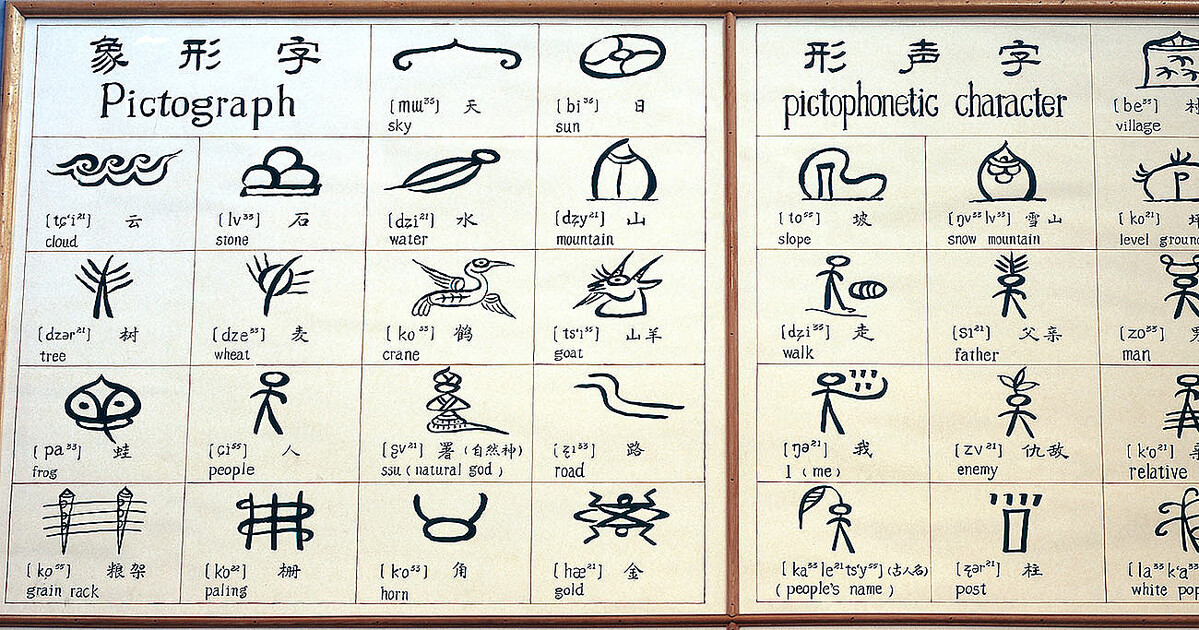 象形字
Pictograph
[mɯ³⁵] 天
sky
[bi³⁵] 日
sun
[tɕ'i²¹] 云
cloud
[lv³³] 石
stone
[dʑi²¹] 水
water
[dʐy²¹] 山
mountain
[dzər²¹] 树
tree
[dze³³] 麦
wheat
[ko³³] 鹤
crane
[ts'i⁵⁵] 山羊
goat
[pa³³] 蛙
frog
[ɕi⁵⁵] 人
people
[ʂv²¹] 署(自然神)
ssu (natural god)
[ʐi³³] 路
road
[ko⁵⁵] 粮架
grain rack
[ko²²] 栅
paling
[k'o³³] 角
horn
[hæ²¹] 金
gold
形声字
pictophonetic character
[be³³] 村
village
[to⁵⁵] 坡
slope
[ŋv⁵⁵lv³³] 雪山
snow mountain
[ko²¹]
level ground
[dʑi⁵⁵] 走
walk
[sɿ²¹] 父亲
father
[zo³³]
man
[ŋə²¹] 我
I (me)
[zv²¹] 仇敌
enemy
[k'o²¹]
relative
[ka³³le²¹ts'y⁵⁵] (古人名)
(people's name)
[ʐər²¹] 柱
post
[la³³k'a³³
white pop